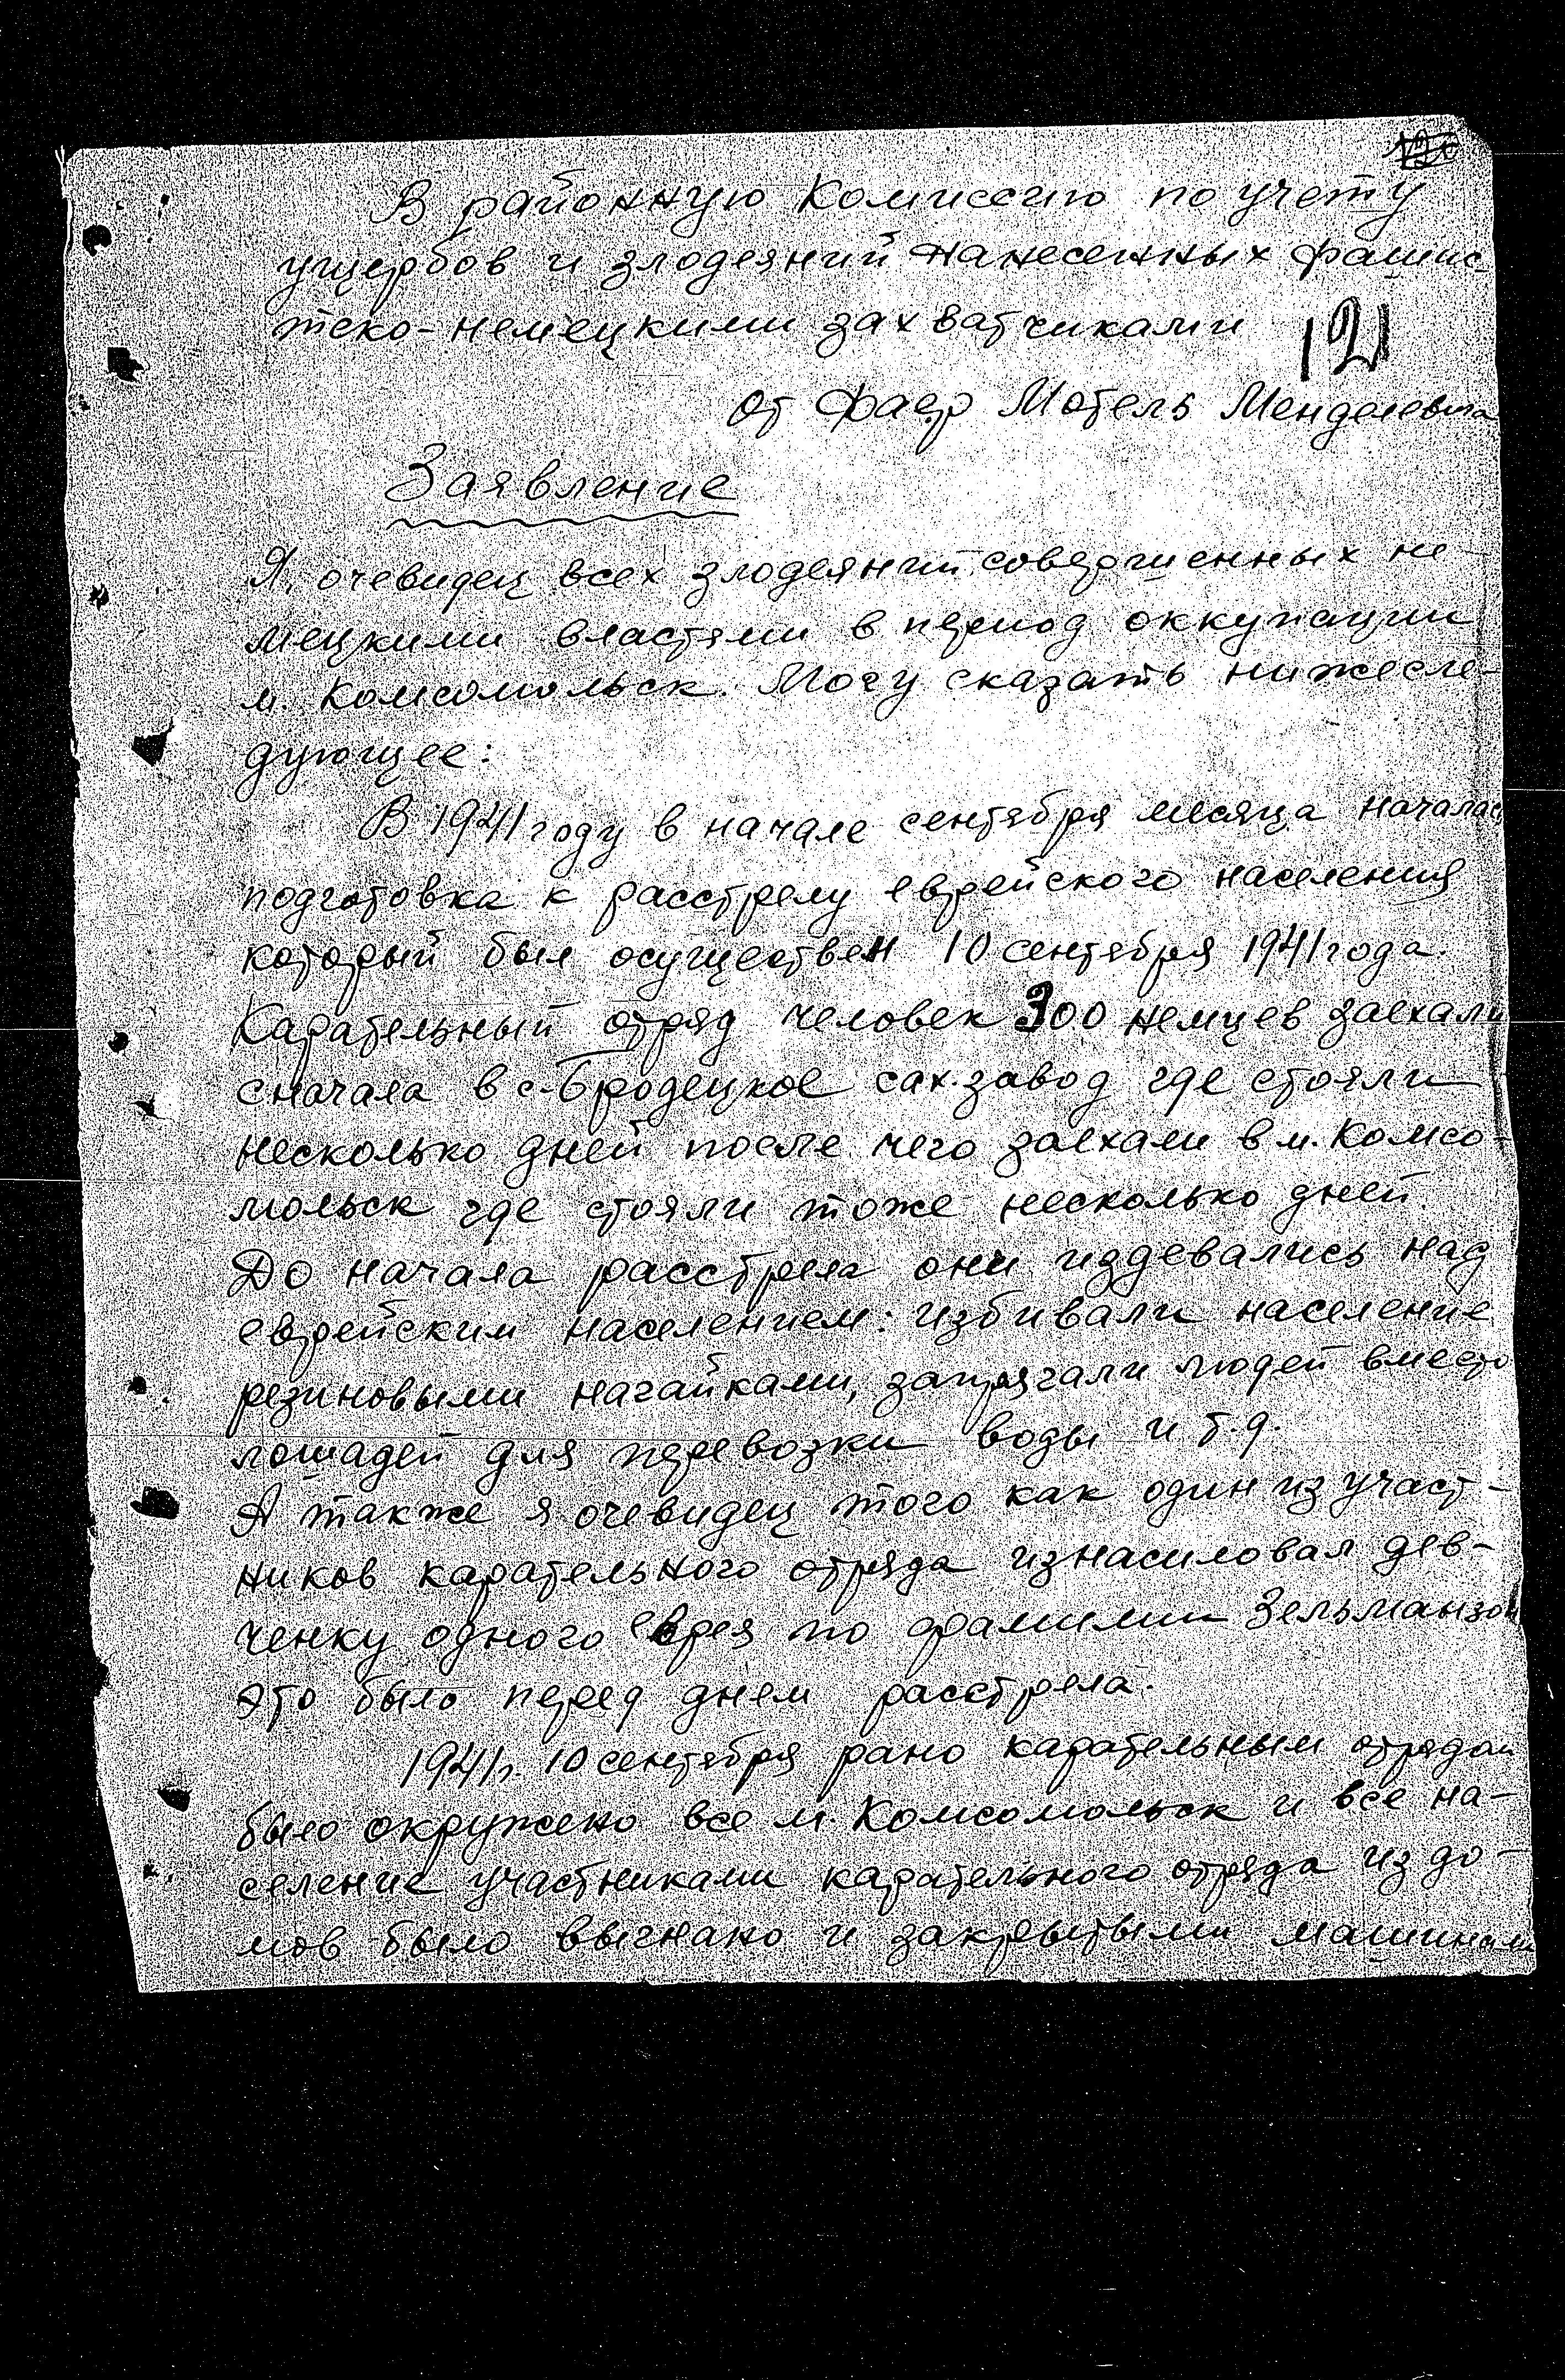 В районную Комиссию по учету
ущербов и злодеяний нанесенных фашис-
тско-немецкими захватчиками
121
от Фаер Мотель Менделевича
Заявление
Я, очевидец всех злодеяний совершенных не-
мецкими властями в период оккупации
м. Комсомольск. Могу сказать нижесле-
дующее:
В 1941 году в начале сентября месяца началась
подготовка к расстрелу еврейского населения
который был осуществен 10 сентября 1941 года.
Карательный отряд человек 300 немцев заехали
сначала в с-Бродецкое сах. завод где стояли
несколько дней после чего заехали в м. Комсо-
мольск где стояли тоже несколько дней.
До начала расстрела они издевались над
еврейским населением: избивали население
резиновыми нагайками, запрягали людей вместо
лошадей для перевозки воды и т.д.
А также я очевидец того как один из участ-
ников карательного отряда изнасиловал дев-
ченку одного еврея по фамилии Зельманзон
Это было перед днем расстрела.
1941 г. 10 сентября рано карательным отрядом
было окружено все м. Комсомольск и все на-
селение участниками карательного отряда из до-
мов было выгнано и закрытыми машинами